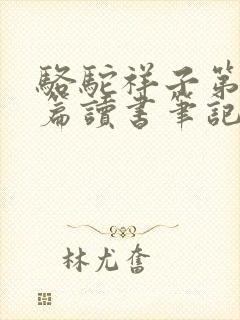 駱駝祥子第
篇讀書筆記
林尤奮